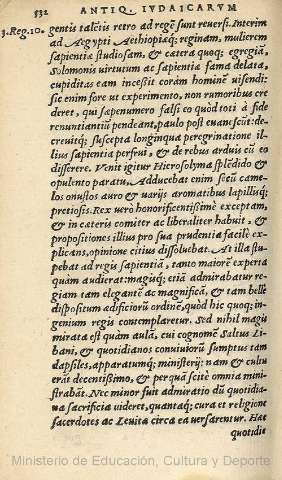 532 ANTIQ. IVDAICARVM
3.Reg.10. gentis talētis retro ad regē sunt reuersi. Interim
ad Aegypti Aethiopiaq; reginam, mulierem
sapientiæ studiosam, & cætera quoq; egregiā,
Solomonis uirtutum ac sapientiæ fama delata,
cupiditas eam incessit coràm hominē uisendi:
sic enim fore ut experimento, non rumoribus cre
deret, qui sæpenumero falsi eo quòd toti à fide
renuntiantiū pendeant, paulo post euanescūt: de-
creuitq; suscepta longinqua peregrinatione il-
lius sapientia perfrui, & de rebus arduis cū eo
disserere. Venit igitur Hierosolyma splēdido &
opulento paratu. Adducebat enim secū came-
los onustos auro & uarijs aromatibus lapillisq;
pretiosis. Rex uero honorificentissimè exceptam,
& in cæteris comiter ac liberaliter habuit, &
propositiones illius pro sua prudentia facilè ex-
plicans, opinione citius dissoluebat. At illa stu-
pebat ad regis sapientiā, tanto maiorē experta
quàm audierat: magisq; etiā admirabatur re-
giam tam elegantē ac magnificā, & tam bellè
dispositum ædificiorū ordinē, quòd hic quoq; in-
genium regis contemplaretur. Sed nihil magis
mirata est quàm aulā, cui cognomē Saltus Li-
bani, & quotidianos conuiuiorū sumptus tam
dapsiles, apparatumq; ministerij: nam & cultu
erāt decentissimo, & perquā scitè omnia mini-
strabāt. Nec minor fuit admiratio dū quotidia-
na sacrificia uideret, quantaq; cura et religione
sacerdotes ac Leuitæ circa ea uersarentur. Hæc
quotidie
Ministerio de Educación, Cultura y Deporte